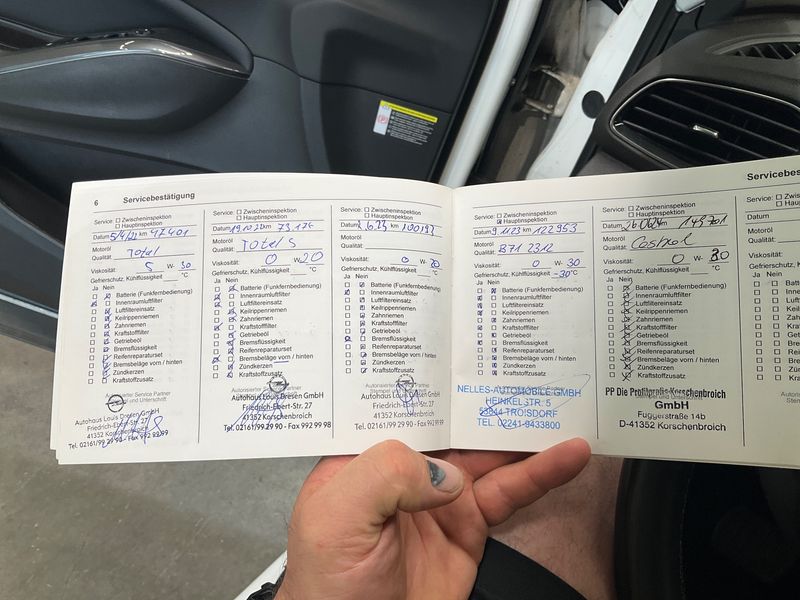 6 Servicebestätigung
Service: ☐ Zwischeninspektion
☐ Hauptinspektion
Datum 5/4/22 km 47401
Motoröl
Qualität: Total
Viskosität: 5 W- 30
Gefrierschutz, Kühlflüssigkeit °C
Ja Nein
Batterie (Funkfernbedienung)
Innenraumluftfilter
Luftfiltereinsatz
Keilrippenriemen
Zahnriemen
Kraftstofffilter
Getriebeöl
Bremsflüssigkeit
Reifenreparaturset
Bremsbeläge vorn / hinten
Zündkerzen
Kraftstoffzusatz
Autorisierter Service Partner
Stempel und Unterschrift
Autohaus Louis Dresen GmbH
Friedrich-Ebert-Str. 27
41352 Korschenbroich
Tel. 02161/99 29 90 - Fax 992 99 99
Service: ☐ Zwischeninspektion
☐ Hauptinspektion
Datum km 73176
Motoröl
Qualität: Total S
Viskosität: 0 W- 20
Gefrierschutz, Kühlflüssigkeit °C
Ja Nein
Batterie (Funkfernbedienung)
Innenraumluftfilter
Luftfiltereinsatz
Keilrippenriemen
Zahnriemen
Kraftstofffilter
Getriebeöl
Bremsflüssigkeit
Reifenreparaturset
Bremsbeläge vorn / hinten
Zündkerzen
Kraftstoffzusatz
Autorisierter Service Partner
Autohaus Louis Dresen GmbH
Friedrich-Ebert-Str. 27
41352 Korschenbroich
Tel. 02161/99 29 90 - Fax 992 99 98
Service: ☐ Zwischeninspektion
☐ Hauptinspektion
Datum 6.23 km
Motoröl
Qualität:
Viskosität: 0 W- 20
Gefrierschutz, Kühlflüssigkeit °C
Ja Nein
Batterie (Funkfernbedienung)
Innenraumluftfilter
Luftfiltereinsatz
Keilrippenriemen
Zahnriemen
Kraftstofffilter
Getriebeöl
Bremsflüssigkeit
Reifenreparaturset
Bremsbeläge vorn / hinten
Zündkerzen
Kraftstoffzusatz
Autorisierter Service Partner
Autohaus Louis Dresen GmbH
Friedrich-Ebert-Str. 27
41352 Korschenbroich
Tel. 02161/99 29 90 - Fax 992 99 98
Service: ☐ Zwischeninspektion
☒ Hauptinspektion
Datum 9.11.23 km 122953
Motoröl
Qualität: B71 2312
Viskosität: 0 W- 30
Gefrierschutz, Kühlflüssigkeit -30 °C
Ja Nein
Batterie (Funkfernbedienung)
Innenraumluftfilter
Luftfiltereinsatz
Keilrippenriemen
Zahnriemen
Kraftstofffilter
Getriebeöl
Bremsflüssigkeit
Reifenreparaturset
Bremsbeläge vorn / hinten
Zündkerzen
Kraftstoffzusatz
NELLES-AUTOMOBILE GMBH
HEINKELSTR. 5
53844 TROISDORF
TEL. 02241-9433800
Service: ☐ Zwischeninspektion
☐ Hauptinspektion
Datum km 143701
Motoröl
Qualität: Castrol
Viskosität: 0 W- 30
Gefrierschutz, Kühlflüssigkeit °C
Ja Nein
Batterie (Funkfernbedienung)
Innenraumluftfilter
Luftfiltereinsatz
Keilrippenriemen
Zahnriemen
Kraftstofffilter
Getriebeöl
Bremsflüssigkeit
Reifenreparaturset
Bremsbeläge vorn / hinten
Zündkerzen
Kraftstoffzusatz
PP Die Profilprofis-Korschenbroich
GmbH
Fuggerstraße 14b
D-41352 Korschenbroich
Servicebes
Service: ☐
☐
Datum
Motoröl
Qualität:
Viskosität:
Gefrierschutz,
Ja Nein